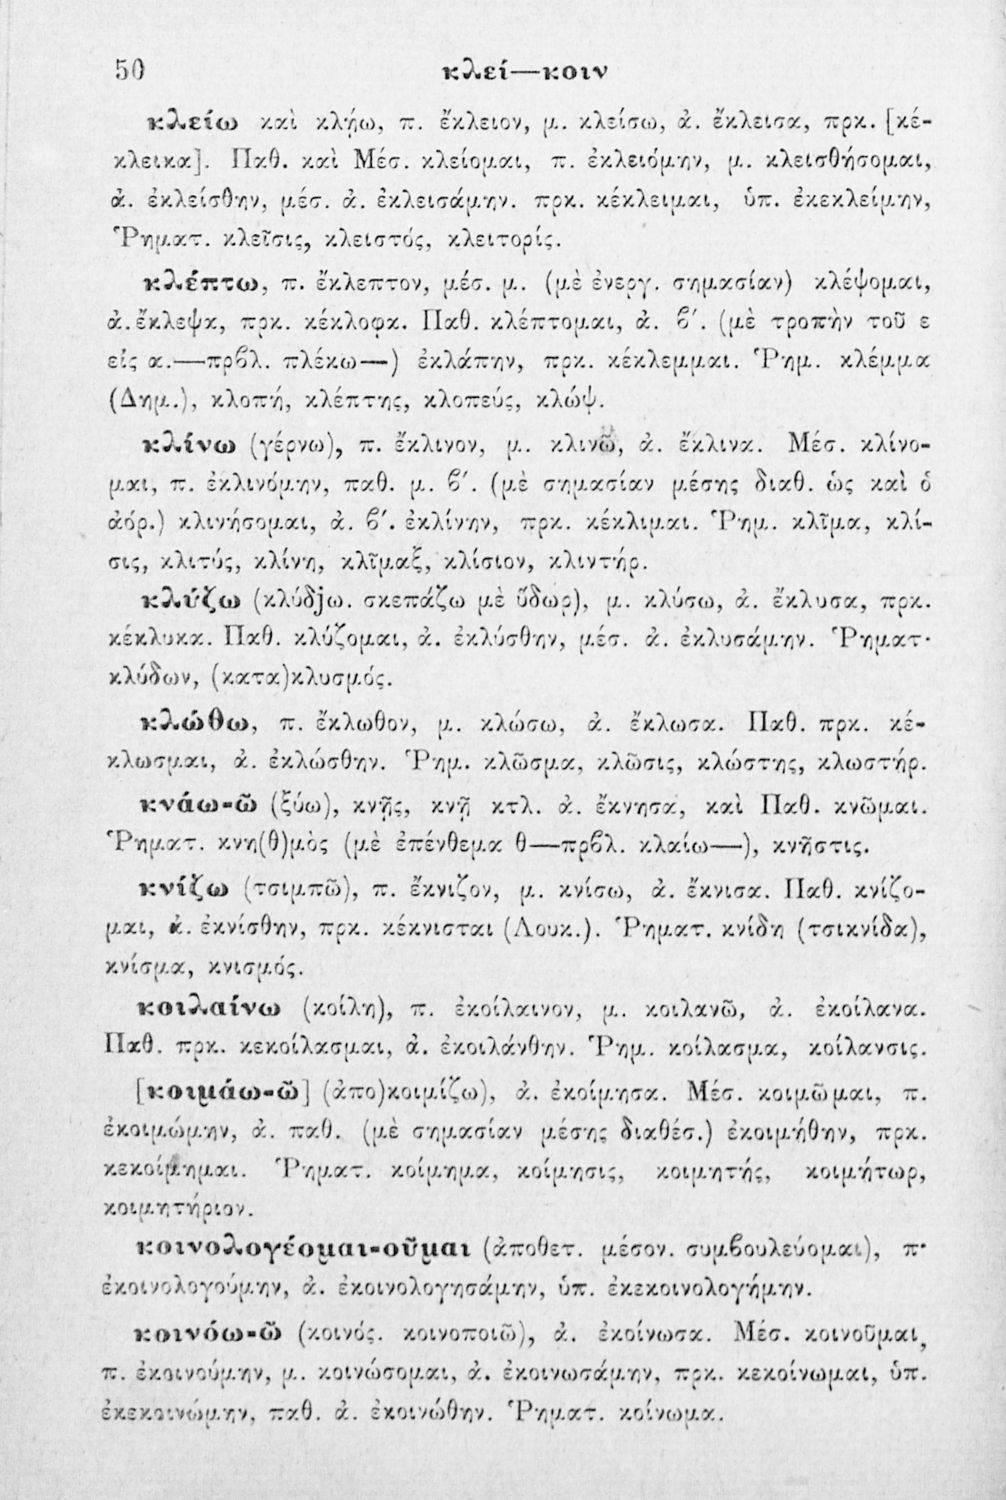 50 κλεί—κοιν
κλείω καὶ κλῄω, π. ἔκλειον, μ. κλείσω, ἀ. ἔκλεισα, πρκ. [κέ-
κλεικα]. Παθ. καὶ Μέσ. κλείομαι, π. ἐκλειόμην, μ. κλεισθήσομαι,
ἀ. ἐκλείσθην, μέσ. ἀ. ἐκλεισάμην. πρκ. κέκλειμαι, ὑπ. ἐκεκλείμην,
Ῥηματ. κλεῖσις, κλειστός, κλειτορίς.
κλέπτω, π. ἔκλεπτον, μέσ. μ. (μὲ ἐνεργ. σημασίαν) κλέψομαι,
ἀ. ἔκλεψα, πρκ. κέκλοφα. Παθ. κλέπτομαι, ἀ. ϐ′. (μὲ τροπὴν τοῦ ε
εἰς α.—πρϐλ. πλέκω—) ἐκλάπην, πρκ. κέκλεμμαι. Ῥημ. κλέμμα
(Δημ.), κλοπή, κλέπτης, κλοπεύς, κλώψ.
κλίνω (γέρνω), π. ἔκλινον, μ. κλινῶ, ἀ. ἔκλινα. Μέσ. κλίνο-
μαι, π. ἐκλινόμην, παθ. μ. ϐ′. (μὲ σημασίαν μέσης διαθ. ὡς καὶ ὁ
ἀόρ.) κλινήσομαι, ἀ. ϐ′. ἐκλίνην, πρκ. κέκλιμαι. Ῥημ. κλῖμα, κλί-
σις, κλιτύς, κλίνη, κλῖμαξ, κλίσιον, κλιντήρ.
κλύζω (κλύδjω. σκεπάζω μὲ ὕδωρ), μ. κλύσω, ἀ. ἔκλυσα, πρκ.
κέκλυκα. Παθ. κλύζομαι, ἀ. ἐκλύσθην, μέσ. ἀ. ἐκλυσάμην. Ῥηματ·
κλύδων, (κατα)κλυσμός.
κλώθω, π. ἔκλωθον, μ. κλώσω, ἀ. ἔκλωσα. Παθ. πρκ. κέ-
κλωσμαι, ἀ. ἐκλώσθην. Ῥημ. κλῶσμα, κλῶσις, κλώστης, κλωστήρ.
κνάω-ῶ (ξύω), κνῇς, κνῇ κτλ. ἀ. ἔκνησα, καὶ Παθ. κνῶμαι.
Ῥηματ. κνη(θ)μὸς (μὲ ἐπένθεμα θ—πρϐλ. κλαίω—), κνῆστις.
κνίζω (τσιμπῶ), π. ἔκνιζον, μ. κνίσω, ἀ. ἔκνισα. Παθ. κνίζο-
μαι, ἀ. ἐκνίσθην, πρκ. κέκνισται (Λουκ.). Ῥηματ. κνίδη (τσικνίδα),
κνίσμα, κνισμός.
κοιλαίνω (κοίλη), π. ἐκοίλαινον, μ. κοιλανῶ, ἀ. ἐκοίλανα.
Παθ. πρκ. κεκοίλασμαι, ἀ. ἐκοιλάνθην. Ῥημ. κοίλασμα, κοίλανσις.
[κοιμάω-ῶ] (ἀπο)κοιμίζω), ἀ. ἐκοίμησα. Μέσ. κοιμῶμαι, π.
ἐκοιμώμην, ἀ. παθ. (μὲ σημασίαν μέσης διαθέσ.) ἐκοιμήθην, πρκ.
κεκοίμημαι. Ῥηματ. κοίμημα, κοίμησις, κοιμητής, κοιμήτωρ,
κοιμητήριον.
κοινολογέομαι-οῦμαι (ἀποθετ. μέσον. συμϐουλεύομαι), π·
ἐκοινολογούμην, ἀ. ἐκοινολογησάμην, ὑπ. ἐκεκοινολογήμην.
κοινόω-ῶ (κοινός. κοινοποιῶ), ἀ. ἐκοίνωσα. Μέσ. κοινοῦμαι,
π. ἐκοινούμην, μ. κοινώσομαι, ἀ. ἐκοινωσάμην, πρκ. κεκοίνωμαι, ὑπ.
ἐκεκοινώμην, παθ. ἀ. ἐκοινώθην. Ῥηματ. κοίνωμα.